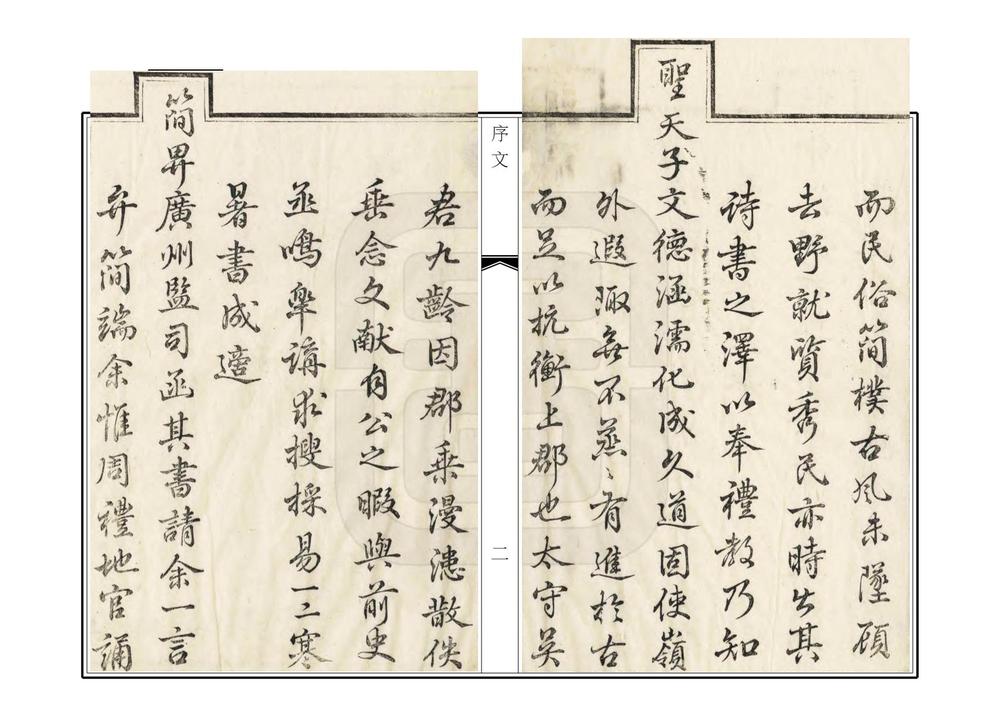 而民俗簡樸古風未墜頎
去野就質秀民亦時出其
詩書之澤以奉禮教乃知
聖天子文德涵濡化成久道固使嶺
外遐陬無不蒸蒸有進於古
而足以抗衡上郡也太守吴
序文
二
君九齡因郡乗漫漶散佚
垂念文献自公之暇與前史
丞鳴犖講求搜採易一二寒
暑書成適
簡畀廣州監司函其書請余一言
弁簡端余惟周禮地官誦